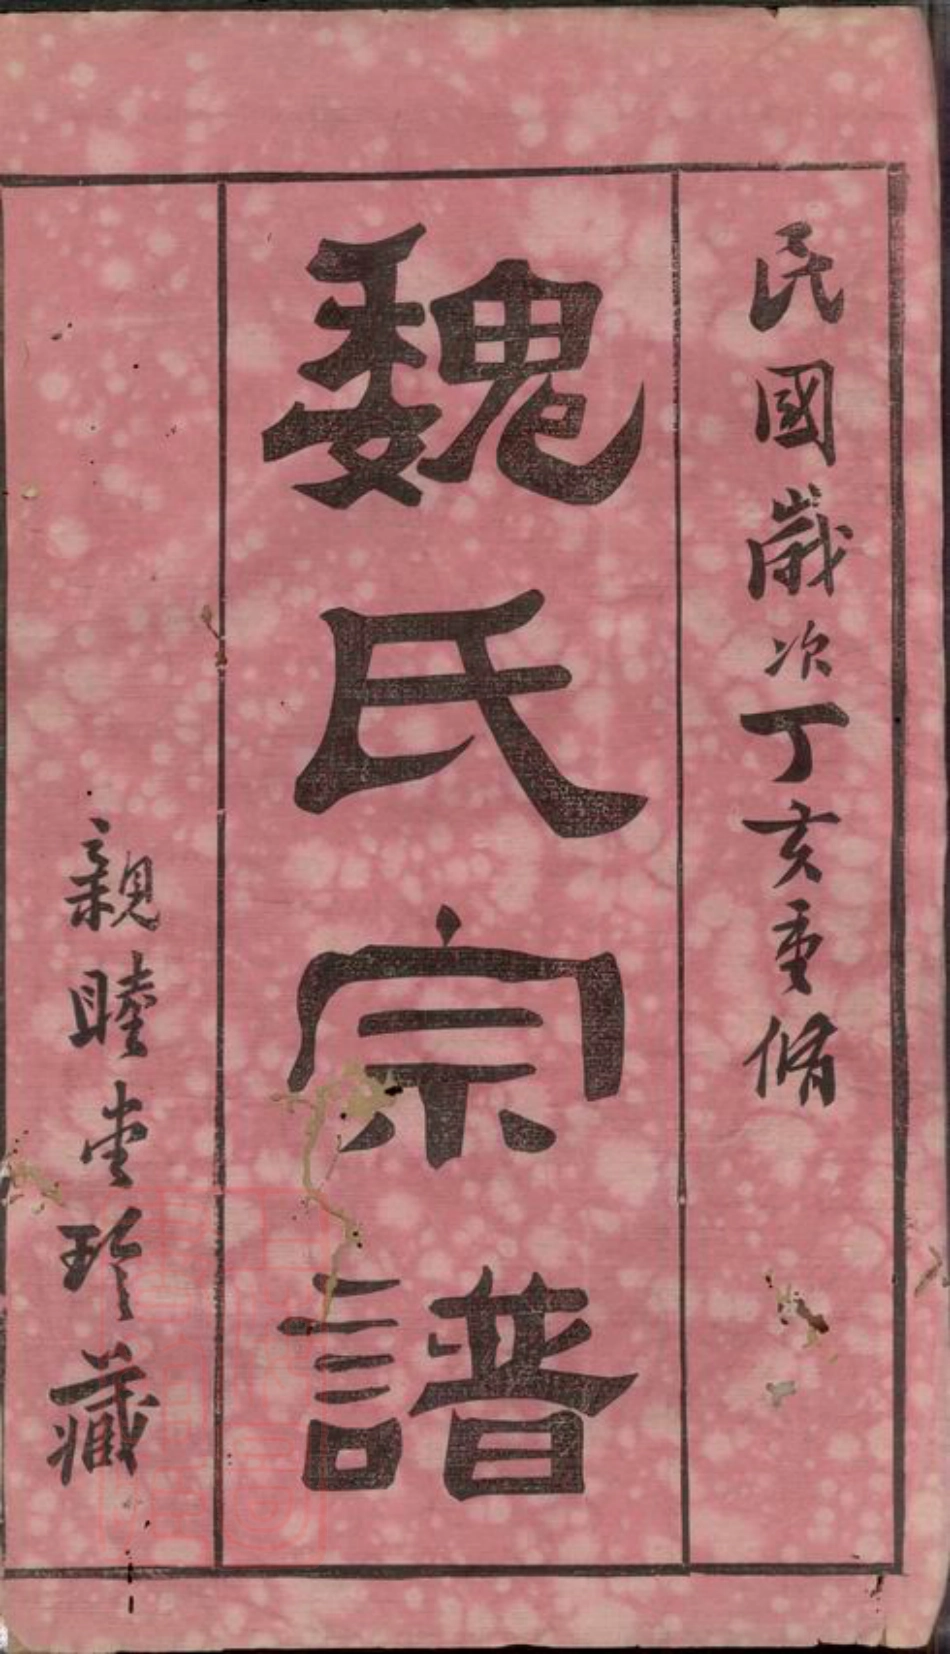 民國歲次丁亥重脩
魏氏宗譜
親睦堂珍藏